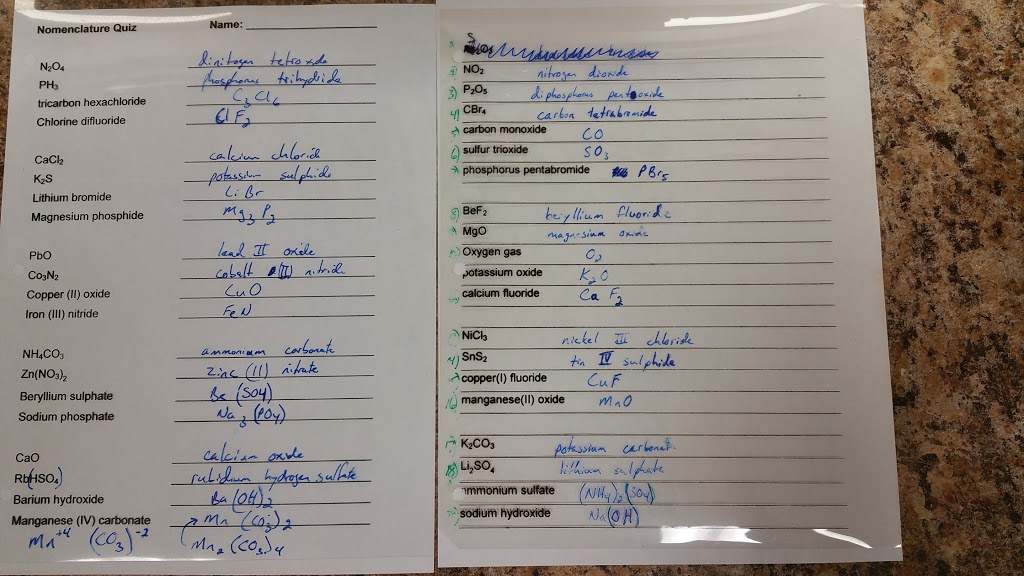 Nomenclature Quiz Name:
N₂O₄ dinitrogen tetroxide
PH₃ phosphorus trihydride
tricarbon hexachloride C₃Cl₆
Chlorine difluoride ClF₂
CaCl₂ calcium chloride
K₂S potassium sulphide
Lithium bromide LiBr
Magnesium phosphide Mg₃P₂
PbO lead II oxide
Co₃N₂ cobalt (II) nitride
Copper (II) oxide CuO
Iron (III) nitride FeN
NH₄CO₃ ammonium carbonate
Zn(NO₃)₂ zinc (II) nitrate
Beryllium sulphate Be(SO4)
Sodium phosphate Na₃(PO₄)
CaO calcium oxide
Rb(HSO₄) rubidium hydrogen sulfate
Barium hydroxide Ba(OH)₂
Manganese (IV) carbonate → Mn(CO₃)₂
Mn⁺⁴ (CO₃)⁻² Mn₂(CO₃)₄
2) NO₂ nitrogen dioxide
3) P₂O₅ diphosphorus pentoxide
4) CBr₄ carbon tetrabromide
carbon monoxide CO
6 sulfur trioxide SO₃
phosphorus pentabromide PBr₅
8) BeF₂ beryllium fluoride
MgO magnesium oxide
Oxygen gas O₂
potassium oxide K₂O
calcium fluoride CaF₂
NiCl₃ nickel III chloride
14) SnS₂ tin IV sulphide
copper(I) fluoride CuF
16 manganese(II) oxide MnO
K₂CO₃ potassium carbonat
Li₂SO₄ lithium sulphate
mmonium sulfate (NH₄)₂(SO₄)
sodium hydroxide Na(OH)